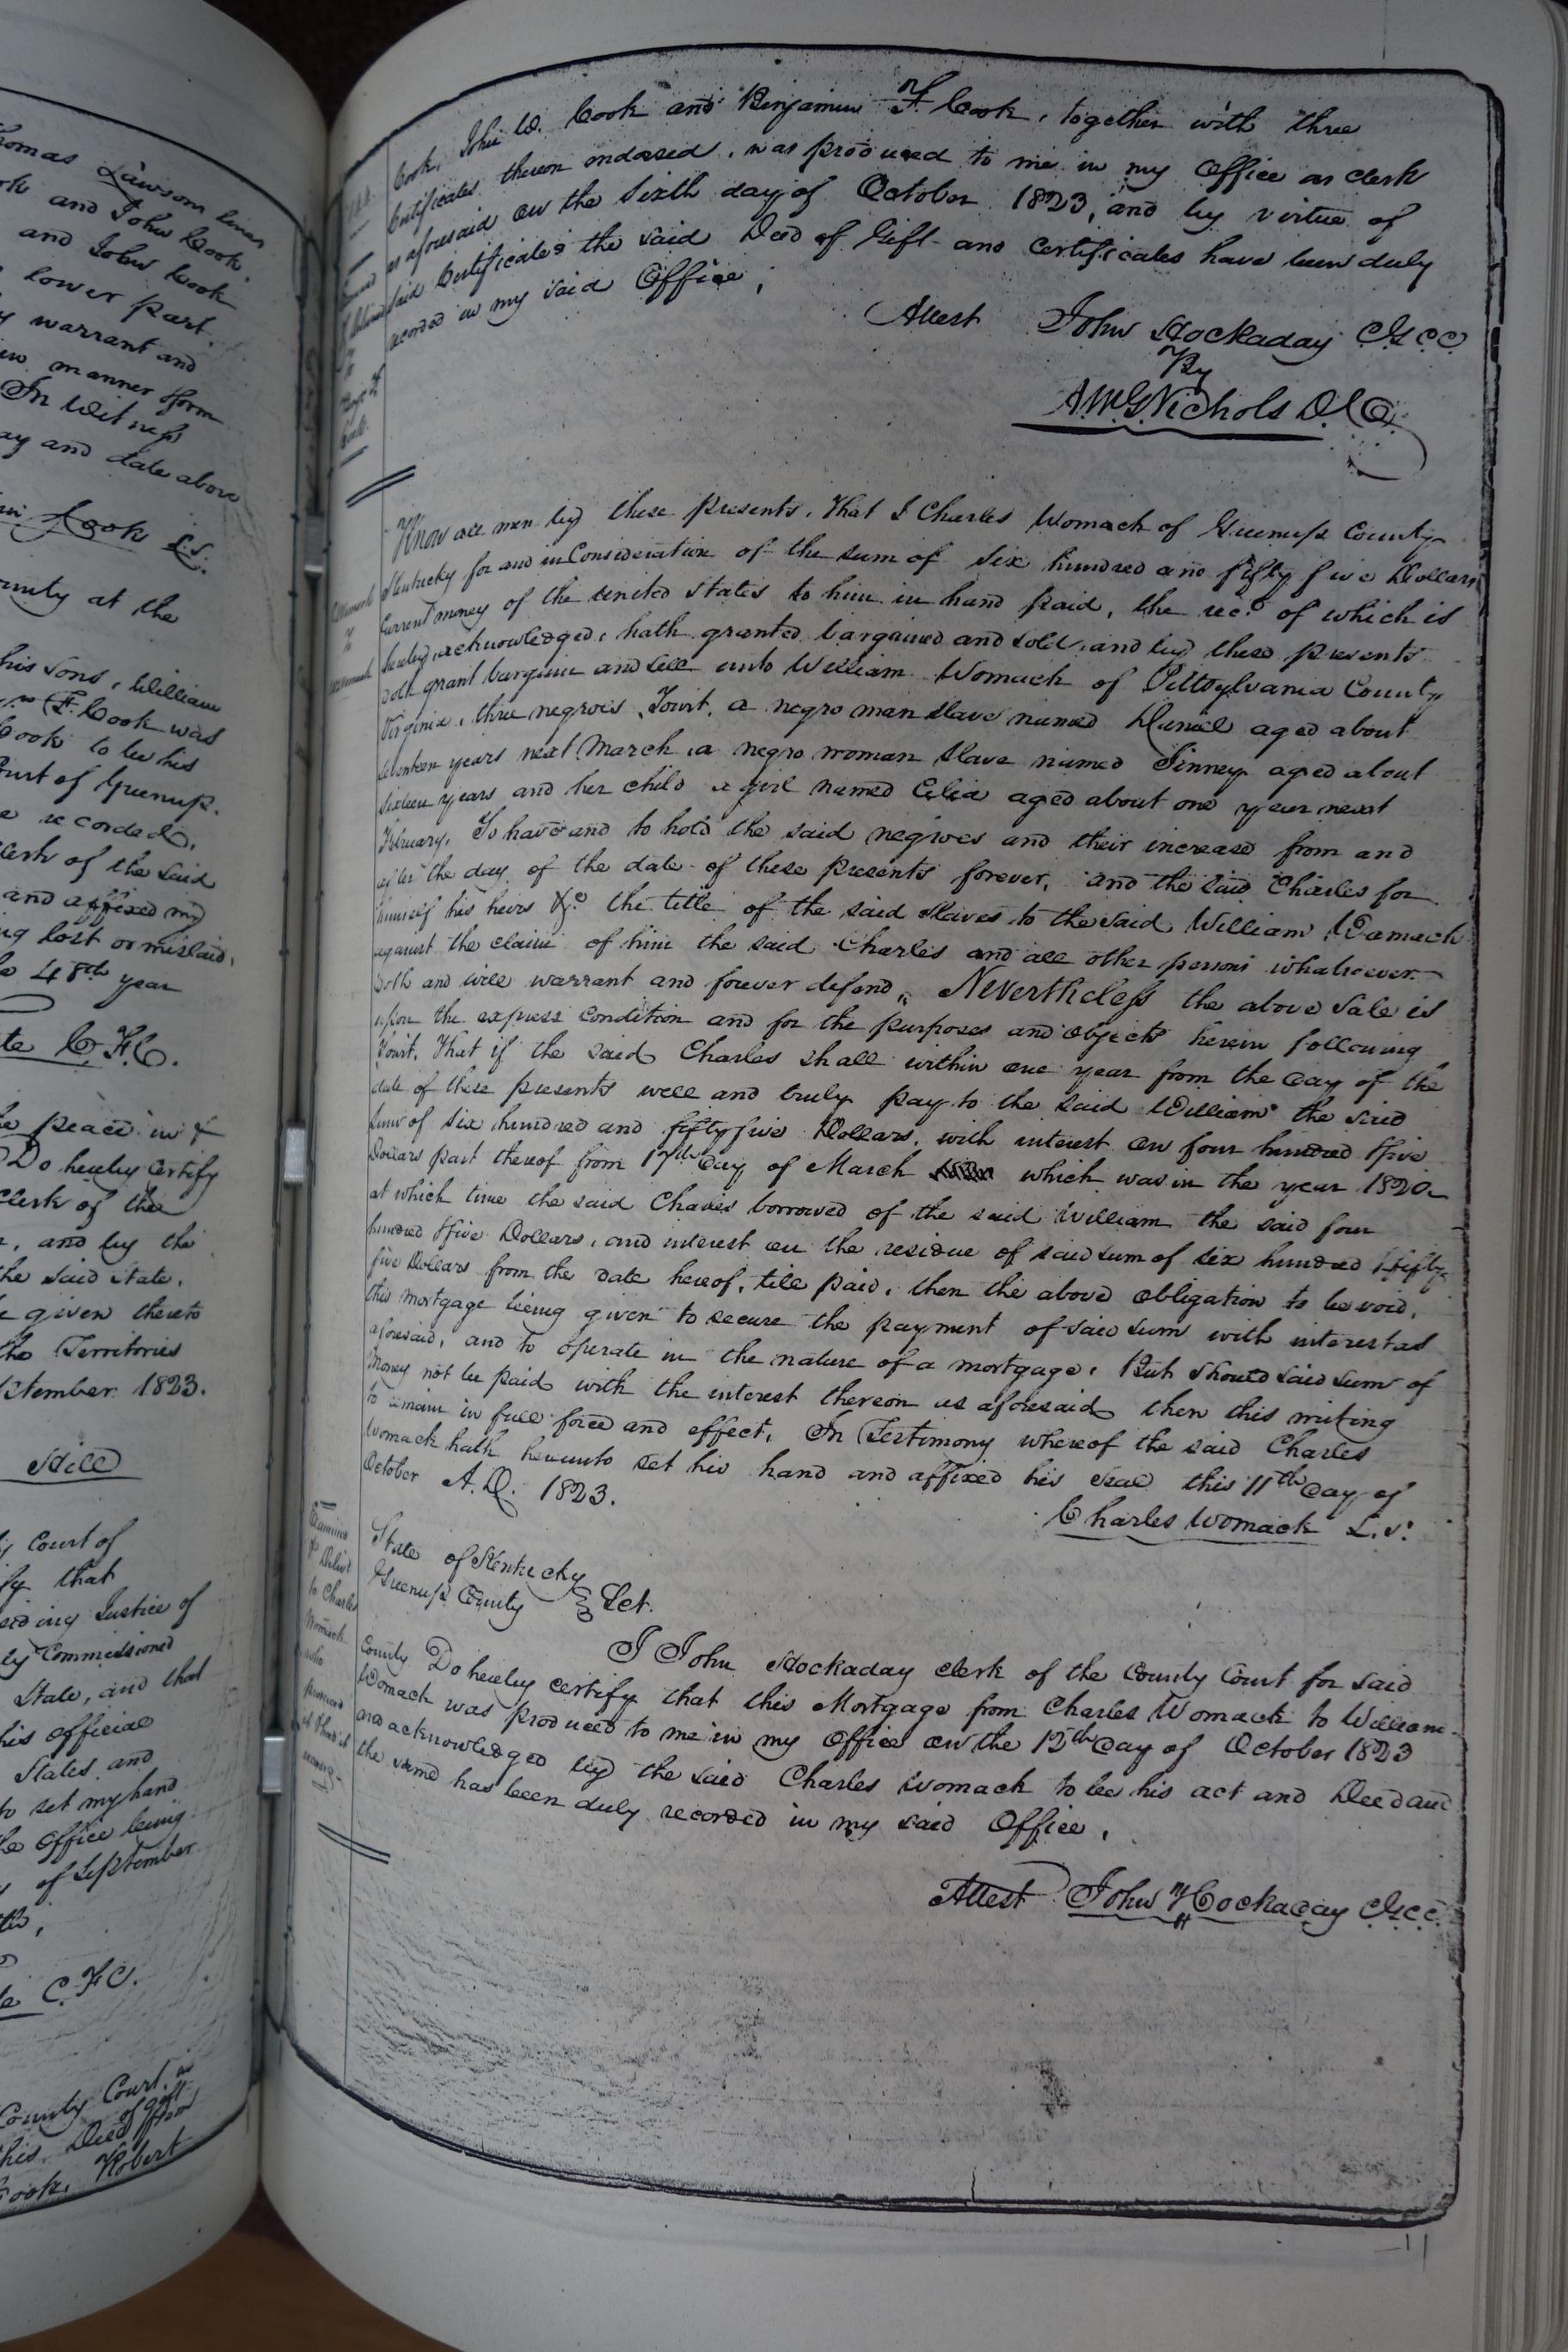 homas Lawson lines
ok and John Cook,
and John Cook
lower part.
y warrant and
in manner & form
In Witness
ay and date above
Cook L.S.
ounty at the
his sons, William
F. Cook was
Cook to be his
Court of Greenup.
e recorded.
lerk of the said
and affixed my
ng lost or mislaid,
48th year
te C.F.C.
he peace in &
Do hereby Certify
Clerk of the
, and by the
the said State.
given thereto
the Territories
ptember 1823.
Hill
y Court of
fy that
siding Justice of
ly Commissioned
State, and that
his official
States and
to set my hand
the office being
of September
C.F.C.
County Court
his Deed of gift from
Cook, Robert
Cook, John W. Cook and Benjamin F. Cook, together with three
Certificates thereon endorsed, was produced to me in my Office as clerk
as aforesaid on the Sixth day of October 1823, and by virtue of
said Certificates the said Deed of Gift and Certificates have been duly
recorded in my said Office,
Attest John Hockaday C.G.C.C.
By
A.McG Nichols D.C.
Know all men by these presents, That I Charles Womack of Greenup County
Kentucky for and in Consideration of the sum of Six hundred and fifty five Dollars
Current money of the United States to him in hand paid, the rect. of which is
hereby acknowledged, hath granted bargained and sold, and by these presents
doth grant bargain and sell unto William Womack of Pittsylvania County
Virginia, three negroes, Towit, a negro man slave named Daniel aged about
seventeen years next March, a negro woman slave named Jinney aged about
sixteen years and her child a girl named Celia aged about one year next
February, To have and to hold the said negroes and their increase from and
after the day of the date of these presents forever, and the said Charles for
himself his heirs &c. the title of the said slaves to the said William Womack
against the claim of him the said Charles and all other persons whatsoever
doth and will warrant and forever defend, Nevertheless the above sale is
upon the express condition and for the purposes and objects herein following
Towit, That if the said Charles shall within one year from the day of the
date of these presents well and truly pay to the said William the said
sum of six hundred and fifty five Dollars, with interest on four hundred & five
Dollars part thereof from 17th day of March which was in the year 1820
at which time the said Charles borrowed of the said William the said four
hundred & five Dollars, and interest on the residue of said sum of six hundred & fifty
five Dollars from the date hereof, till paid, then the above obligation to be void,
this mortgage being given to secure the payment of said sum with interest as
aforesaid, and to operate in the nature of a mortgage, But should said sum of
money not be paid with the interest thereon as aforesaid then this writing
to remain in full force and effect, In Testimony whereof the said Charles
Womack hath hereunto set his hand and affixed his seal this 11th day of
October A.D. 1823.
Charles Womack L.S.
Examined
& Deliv'd
to Charles
Womack
who
produced
State of Kentucky
Greenup County Sct.
I John Hockaday clerk of the County Court for said
County Do hereby certify that this Mortgage from Charles Womack to William
Womack was produced to me in my Office on the 12th day of October 1823
and acknowledged by the said Charles Womack to be his act and Deed and
the same has been duly recorded in my said Office,
Attest John Hockaday C.G.C.C.